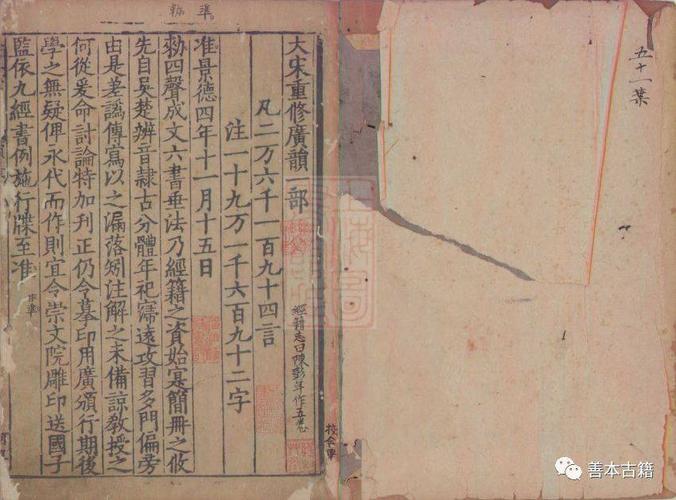 五十一葉
大宋重修廣韻一部
凡二万六千一百九十四言
注一十九万一千六百九十二字
經籍志曰陳彭年作五卷
准景德四年十一月十五日
勑四聲成文六書垂法乃經籍之資始寔簡冊之攸
先自吳楚辨音隷古分體年祀寖遠攻習多門偏旁
由是差譌傳寫以之漏落矧注解之未備諒教授之
何從爰命討論特加刊正仍令摹印用廣頒行期後
學之無疑俾永代而作則宜令崇文院雕印送國子
監依九經書例施行牒至准
準
善本古籍